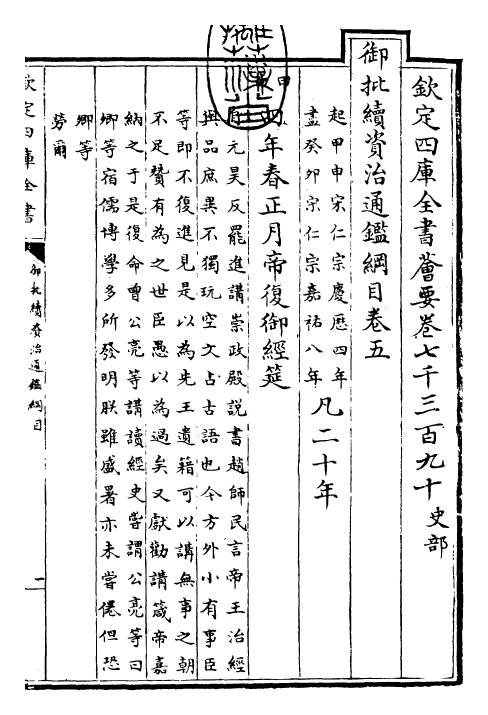 欽定四庫全書薈要卷七千三百九十 史部
御批續資治通鑑綱目卷五
起甲申宋仁宗慶歴四年
盡癸卯宋仁宗嘉祐八年
凡二十年
甲
四年春正月帝復御經筵
自元昊反罷進講崇政殿説書趙師民言帝王治經
與品庶異不獨玩空文占古語也今方外小有事臣
等即不復進見是以為先王遺籍可以講無事之朝
不足賛有為之世臣愚以為過矣又獻勸講箴帝嘉
納之于是復命曽公亮等講讀經史嘗謂公亮等曰
卿等宿儒博學多所發明朕雖盛暑亦未嘗倦但恐
卿等
勞爾
欽定四庫全書
御批續資治通鑑綱目
一